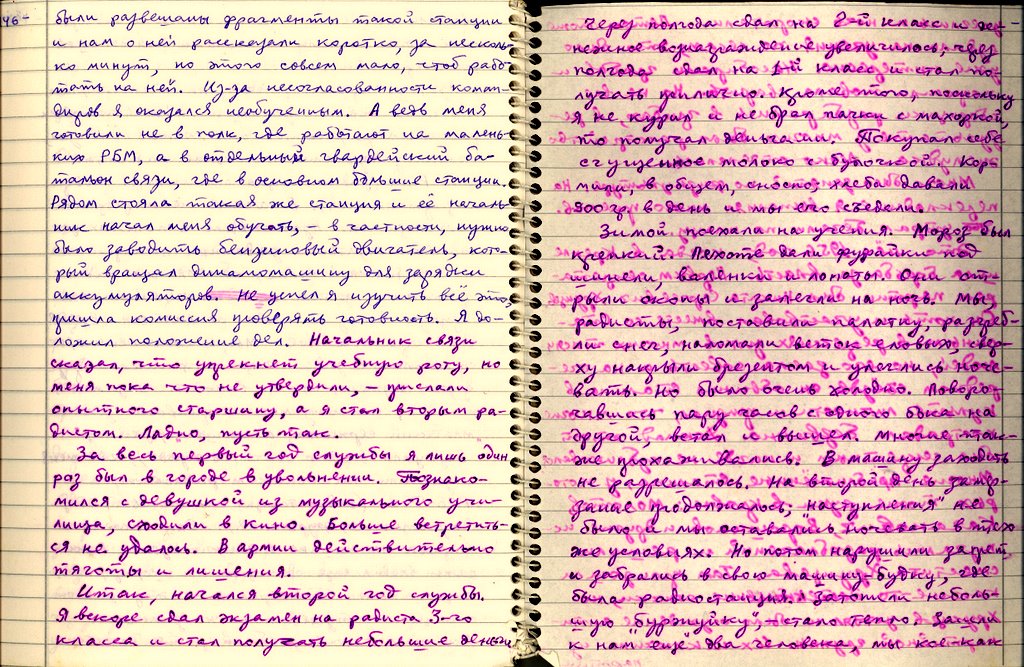 46-
были развешаны фрагменты такой станции
и нам о ней рассказали коротко, за несколь-
ко минут, но этого совсем мало, чтоб рабо-
тать на ней. Из-за несогласованности коман-
диров я оказался необученным. А ведь меня
готовили не в полк, где работают на малень-
ких РБМ, а в отдельный гвардейский ба-
тальон связи, где в основном большие станции.
Рядом стояла такая же станция и её началь-
ник начал меня обучать, – в частности, нужно
было заводить бензиновый двигатель, кото-
рый вращал динамомашину для зарядки
аккумуляторов. Не успел я изучить всё это,
пришла комиссия проверять готовность. Я до-
ложил положение дел. Начальник связи
сказал, что упрекнет учебную роту, но
меня пока что не утвердили, – прислали
опытного старшину, а я стал вторым ра-
дистом. Ладно, пусть так.
За весь первый год службы я лишь один
раз был в городе в увольнении. Познако-
мился с девушкой из музыкального учи-
лища, сходили в кино. Больше встретить-
ся не удалось. В армии действительно
тяготы и лишения.
Итак, начался второй год службы.
Я вскоре сдал экзамен на радиста 3-го
класса и стал получать небольшие деньги.
Через полгода сдал на 2-й класс и де-
нежное вознаграждение увеличилось, через
полгода сдал на 1-й класс и стал по-
лучать прилично. Кроме того, поскольку
я не курил и не брал пачки с махоркой,
то получал деньгами. Покупал себе
сгущенное молоко с булочкой. Кор-
мили, в общем, сносно, хлеба давали
900 гр в день и мы его съедали.
Зимой поехали на учения. Мороз был
крепкий. Пехоте дали фуфайки под
шинели, валенки и лопаты. Они от-
рыли окопы и залегли на ночь. Мы,
радисты, поставили палатку, разгреб-
ли снег, наломали веток еловых, свер-
ху накрыли брезентом и улеглись ноче-
вать. Но было очень холодно. Поворо-
чавшись пару часов с одного бока на
другой, встал и вышел. Многие так-
же прохаживались. В машину заходить
не разрешалось. На второй день
продолжалось, "наступления" не
было и мы оставались ночевать в тех
же условиях. Но потом нарушили запрет
и забрались в свою машину-будку, где
была радиостанция. Затопили неболь-
шую "буржуйку", стало тепло. Зашли
к нам ещё два человека, мы кое-как